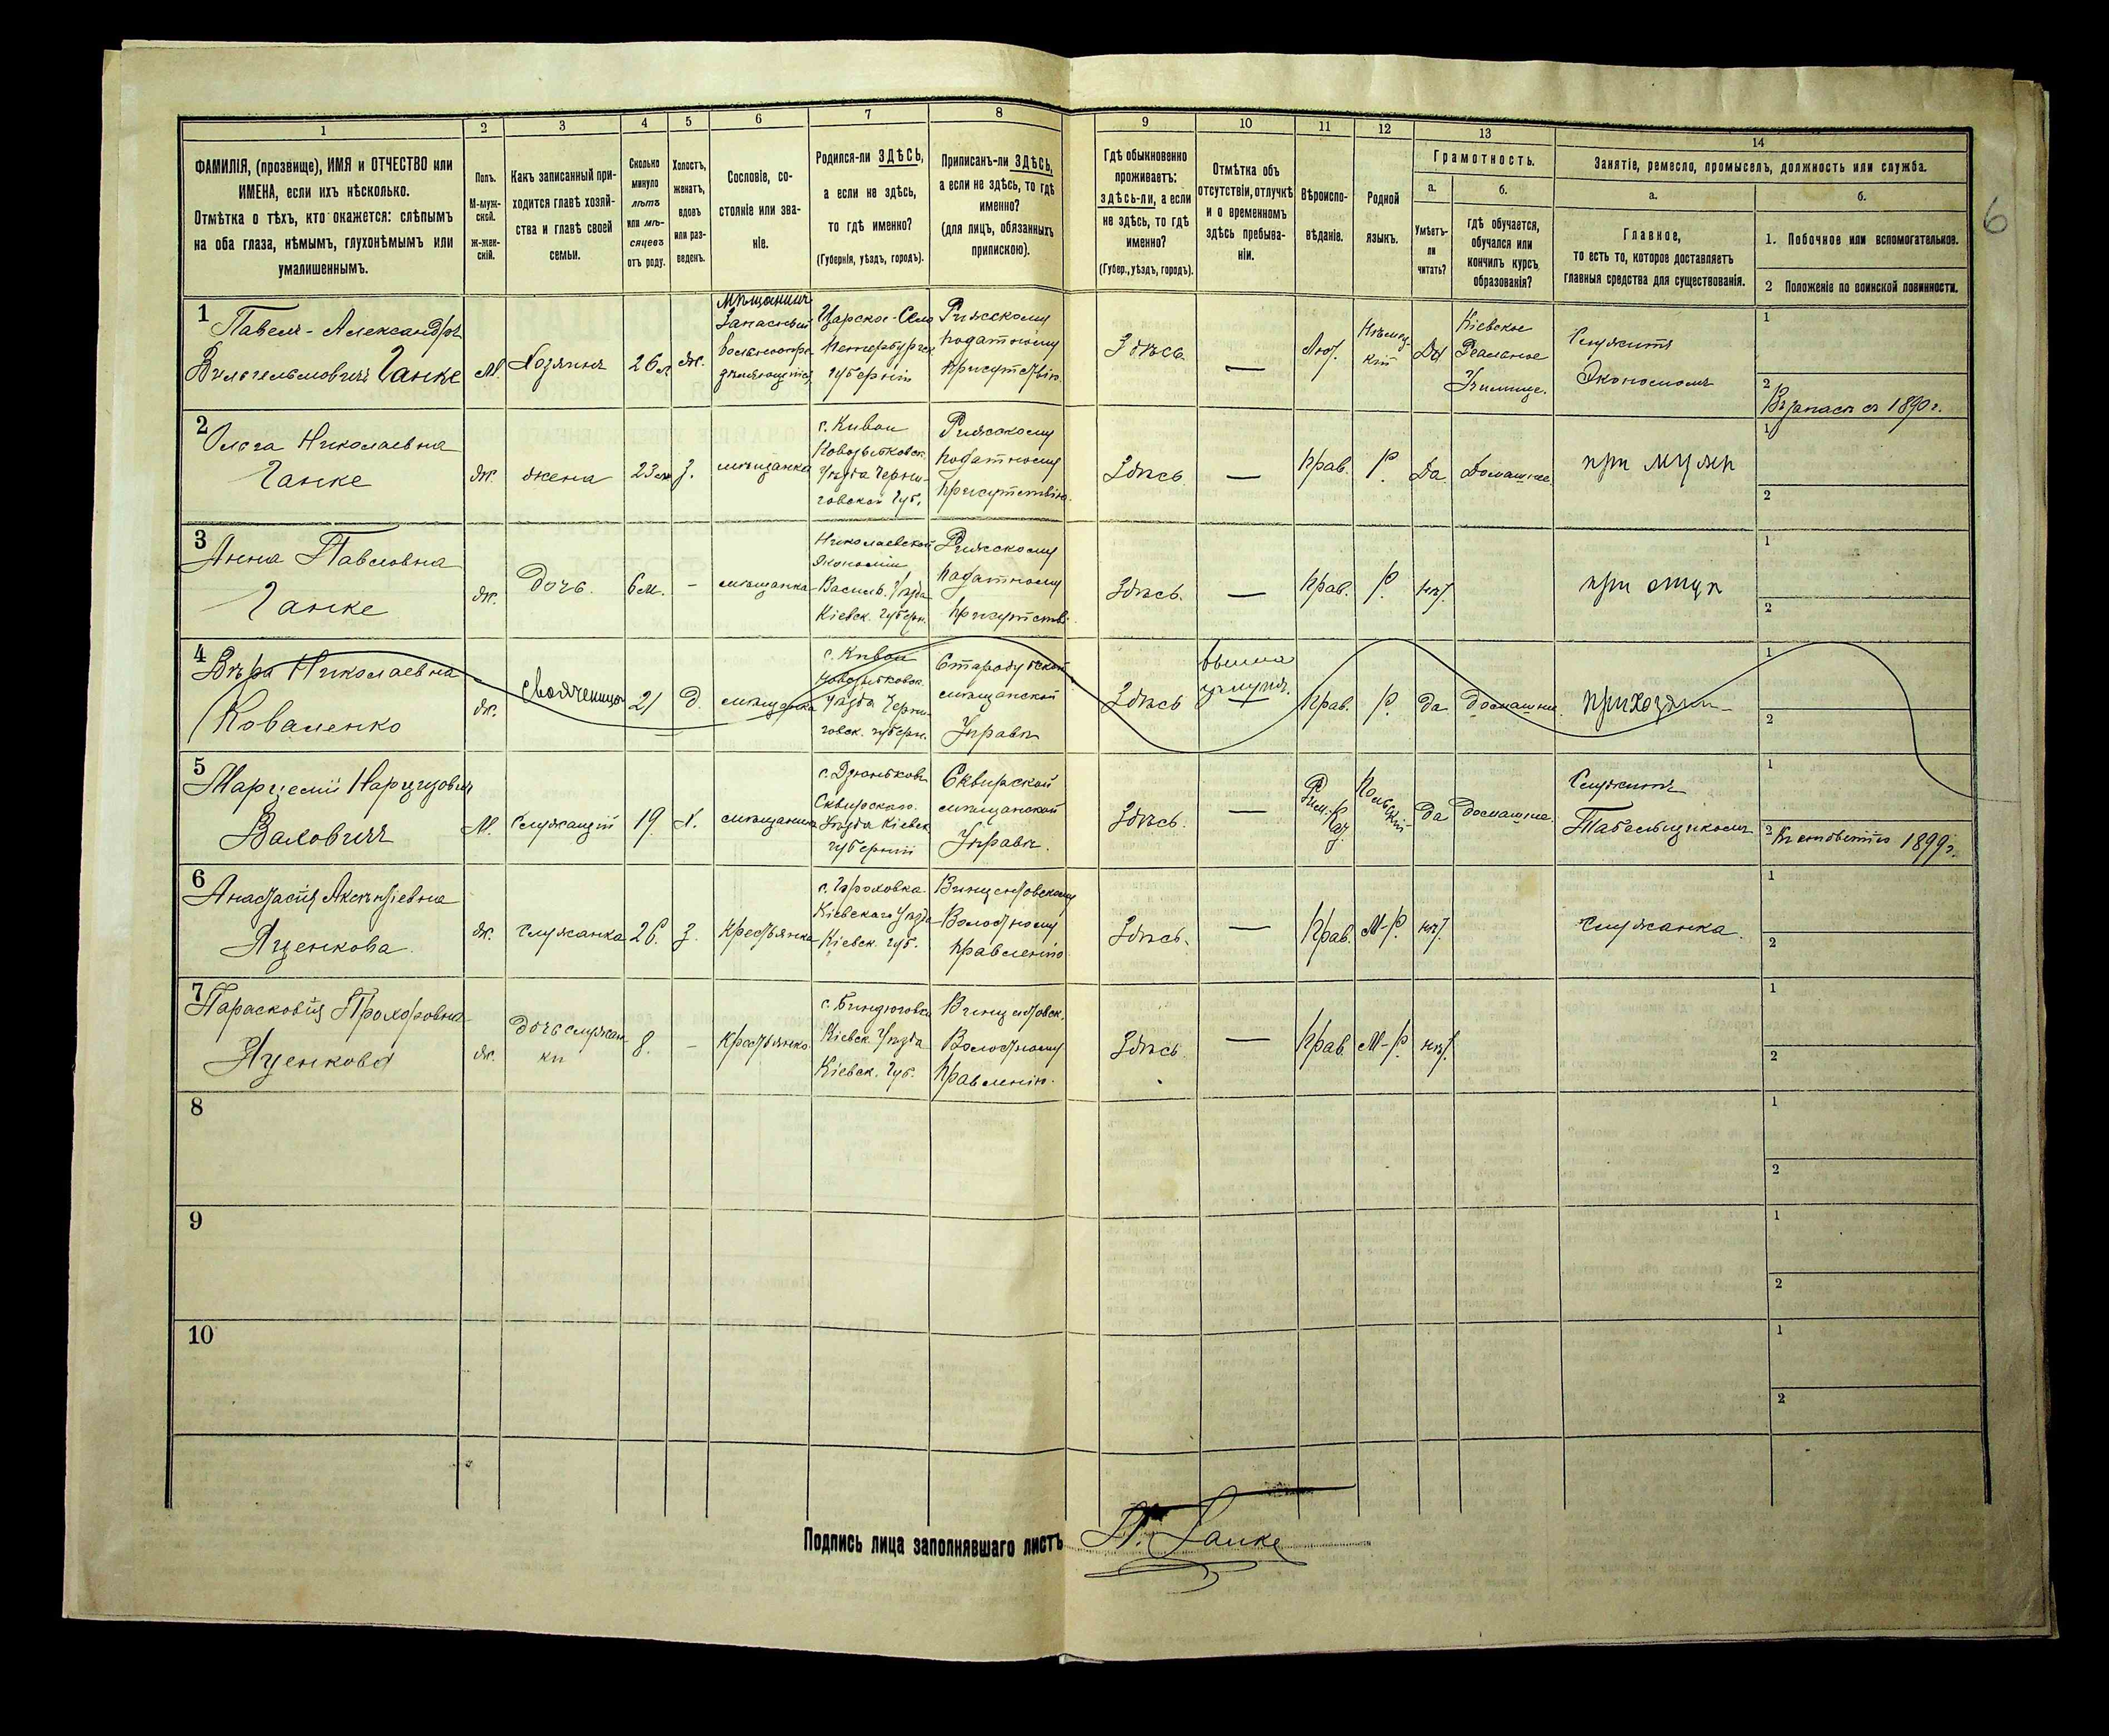 1 2 3 4 5 6 7 8 9 10 11 12 13 14
ФАМИЛІЯ, (прозвище), ИМЯ и ОТЧЕСТВО или
ИМЕНА, если ихъ нѣсколько.
Отмѣтка о тѣхъ, кто окажется: слѣпымъ
на оба глаза, нѣмымъ, глухонѣмымъ или
умалишеннымъ.
Полъ.
М-муж-
ской.
Ж-жен-
скій.
Какъ записанный при-
ходится главѣ хозяй-
ства и главѣ своей
семьи.
Сколько
минуло
лѣтъ
или мѣ-
сяцевъ
отъ роду.
Холостъ,
женатъ,
вдовъ
или раз-
веденъ.
Сословіе, со-
стояніе или зва-
ніе.
Родился-ли ЗДѢСЬ,
а если не здѣсь,
то гдѣ именно?
(Губернія, уѣздъ, городъ).
Приписанъ-ли ЗДѢСЬ,
а если не здѣсь, то гдѣ
именно?
(для лицъ, обязанныхъ
припискою).
Гдѣ обыкновенно
проживаетъ:
здѣсь-ли, а если
не здѣсь, то гдѣ
именно?
(Губер., уѣздъ, городъ).
Отмѣтка объ
отсутствіи, отлучкѣ
и о временномъ
здѣсь пребыва-
ніи.
Вѣроиспо-
вѣданіе.
Родной
языкъ.
Грамотность.
а.
Умѣетъ-
ли
читать?
б.
гдѣ обучается,
обучался или
кончилъ курсъ
образованія?
Занятіе, ремесло, промыселъ, должность или служба.
а.
Главное,
то есть то, которое доставляетъ
главныя средства для существованія.
б.
1. Побочное или вспомогательное.
2 Положеніе по воинской повинности.
6
1
Павелъ-Александръ
Вильгельмовичъ Ганке
М.
Хозяинъ
26 л.
Ж.
Мѣщанинъ
Запасный
Царское-Село
Петербургск.
губерніи
Рижскому
податному
присутствію
Здѣсь
—
Лют.
Нѣмец-
кій
Да
Кіевское
Реальное
Училище.
Служитъ
Экономомъ
1
2
Въ запасѣ съ 1890 г.
2
Ольга Николаевна
Ганке
Ж.
жена
23 л.
З.
мѣщанка
с. Киваи
Новозыбковск.
Уѣзда Черни-
говской Губ.
Рижскому
податному
присутствію
Здѣсь
—
Прав.
Р.
Да
Домашнее
при мужѣ
1
2
3
Анна Павловна
Ганке
Ж.
Дочь.
6 м.
-
мѣщанка
Николаевской
Экономіи
Васильк. Уѣзда
Кіевск. губерн.
Рижскому
податному
присутств.
Здѣсь.
—
Прав.
Р.
нѣт.
при отцѣ
1
2
4
Вѣра Николаевна
Коваленко
Ж.
Свояченица
21
Д.
мѣщанка
с. Киваи
Новозыбковск.
Уѣзда Черни-
говск. губерн.
Стародубской
мѣщанской
Управѣ
Здѣсь
Прав.
Р.
да
домашнее.
1
2
5
Марцелій Нарцизовичъ
Ваховичъ
М.
Служащій
19
Х.
мѣщанинъ
с. Дзюньковъ
Сквирскаго
Уѣзда Кіевск.
губерніи
Сквирской
мѣщанской
Управѣ.
Здѣсь.
—
Рим.
Кат.
Польскій
да
домашнее.
Служитъ
Табельщикомъ
1
2
1899 г.
6
Анастасія Аксентіевна
Яценкова.
Ж.
служанка
26.
З.
Крестьянка
с. Гороховка
Кіевскаго Уѣзда
Кіевск. губ.
Винцентовскому
Волостному
правленію
Здѣсь.
—
Прав.
М-Р.
нѣт.
служанка.
1
2
7
Парасковія Прохоровна
Яценкова
Ж.
Дочь служан-
ки
8.
-
крестьянка
с. Биндюговка
Кіевск. Уѣзда
Кіевск. Губ.
Винцентовск.
Волостному
Правленію.
Здѣсь.
—
Прав.
М-Р.
нѣт.
1
2
8
1
2
9
1
2
10
1
2
Подпись лица заполнявшаго листъ
П. Ганке